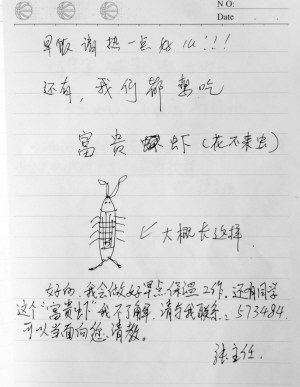 NO:
Date
早饭 谢 热一点 好么!!!
还有, 我们都想吃
富贵虾(花不来虫)
↙大概长这样.
好的,我会做好早点保温工作。还有同学
这个"富贵虾"我不了解,请与我联系:573484.
可以当面向您请教。
张主任.